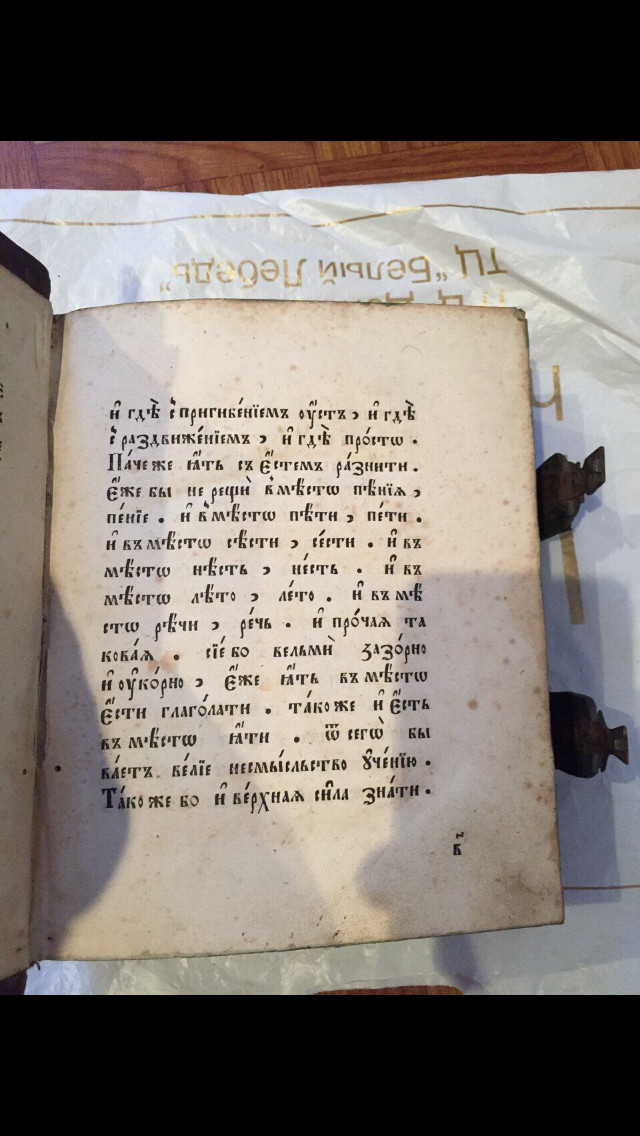 ТЦ "Белый Лебедь"
и҆ гдѣ̀ с̾пригибе́нїемъ ᲂу҆́стъ, и҆ гдѣ̀
с̾ раздвиже́нїемъ, и҆ гдѣ̀ про́стѡ.
Па́че же ꙗ҆́ть съ є҆́стемъ ра́знити.
є҆́же бы не рещѝ в̾мѣ́стѡ пѣ́нїѧ,
пе́нїе. и҆ в̾мѣ́стѡ пѣ́ти, пе́ти.
и҆ въ мѣ́стѡ сѣ́сти, се́сти. и҆ въ
мѣ́стѡ нѣ́сть, не́сть. и҆ въ
мѣ́стѡ лѣ́то, ле́то. и҆ въ мѣ́
стѡ рѣ́чи, ре́чь. и҆ про́чаѧ та
кова́ѧ. сїе́ бо вельмѝ зазо́рно
и҆ ᲂу҆ко́рно, є҆́же ꙗ҆́ть въ мѣ́стѡ
є҆́сти глаго́лати. та́коже и҆ є҆́сть
въ мѣ́стѡ ꙗ҆́ти. ѿ сегѡ̀ бы
ва́етъ ве́лїе несмы́сльство ᲂу҆че́нїю.
Та́коже бо и҆ ве́рхнаѧ си́ла зна́ти.
в҃